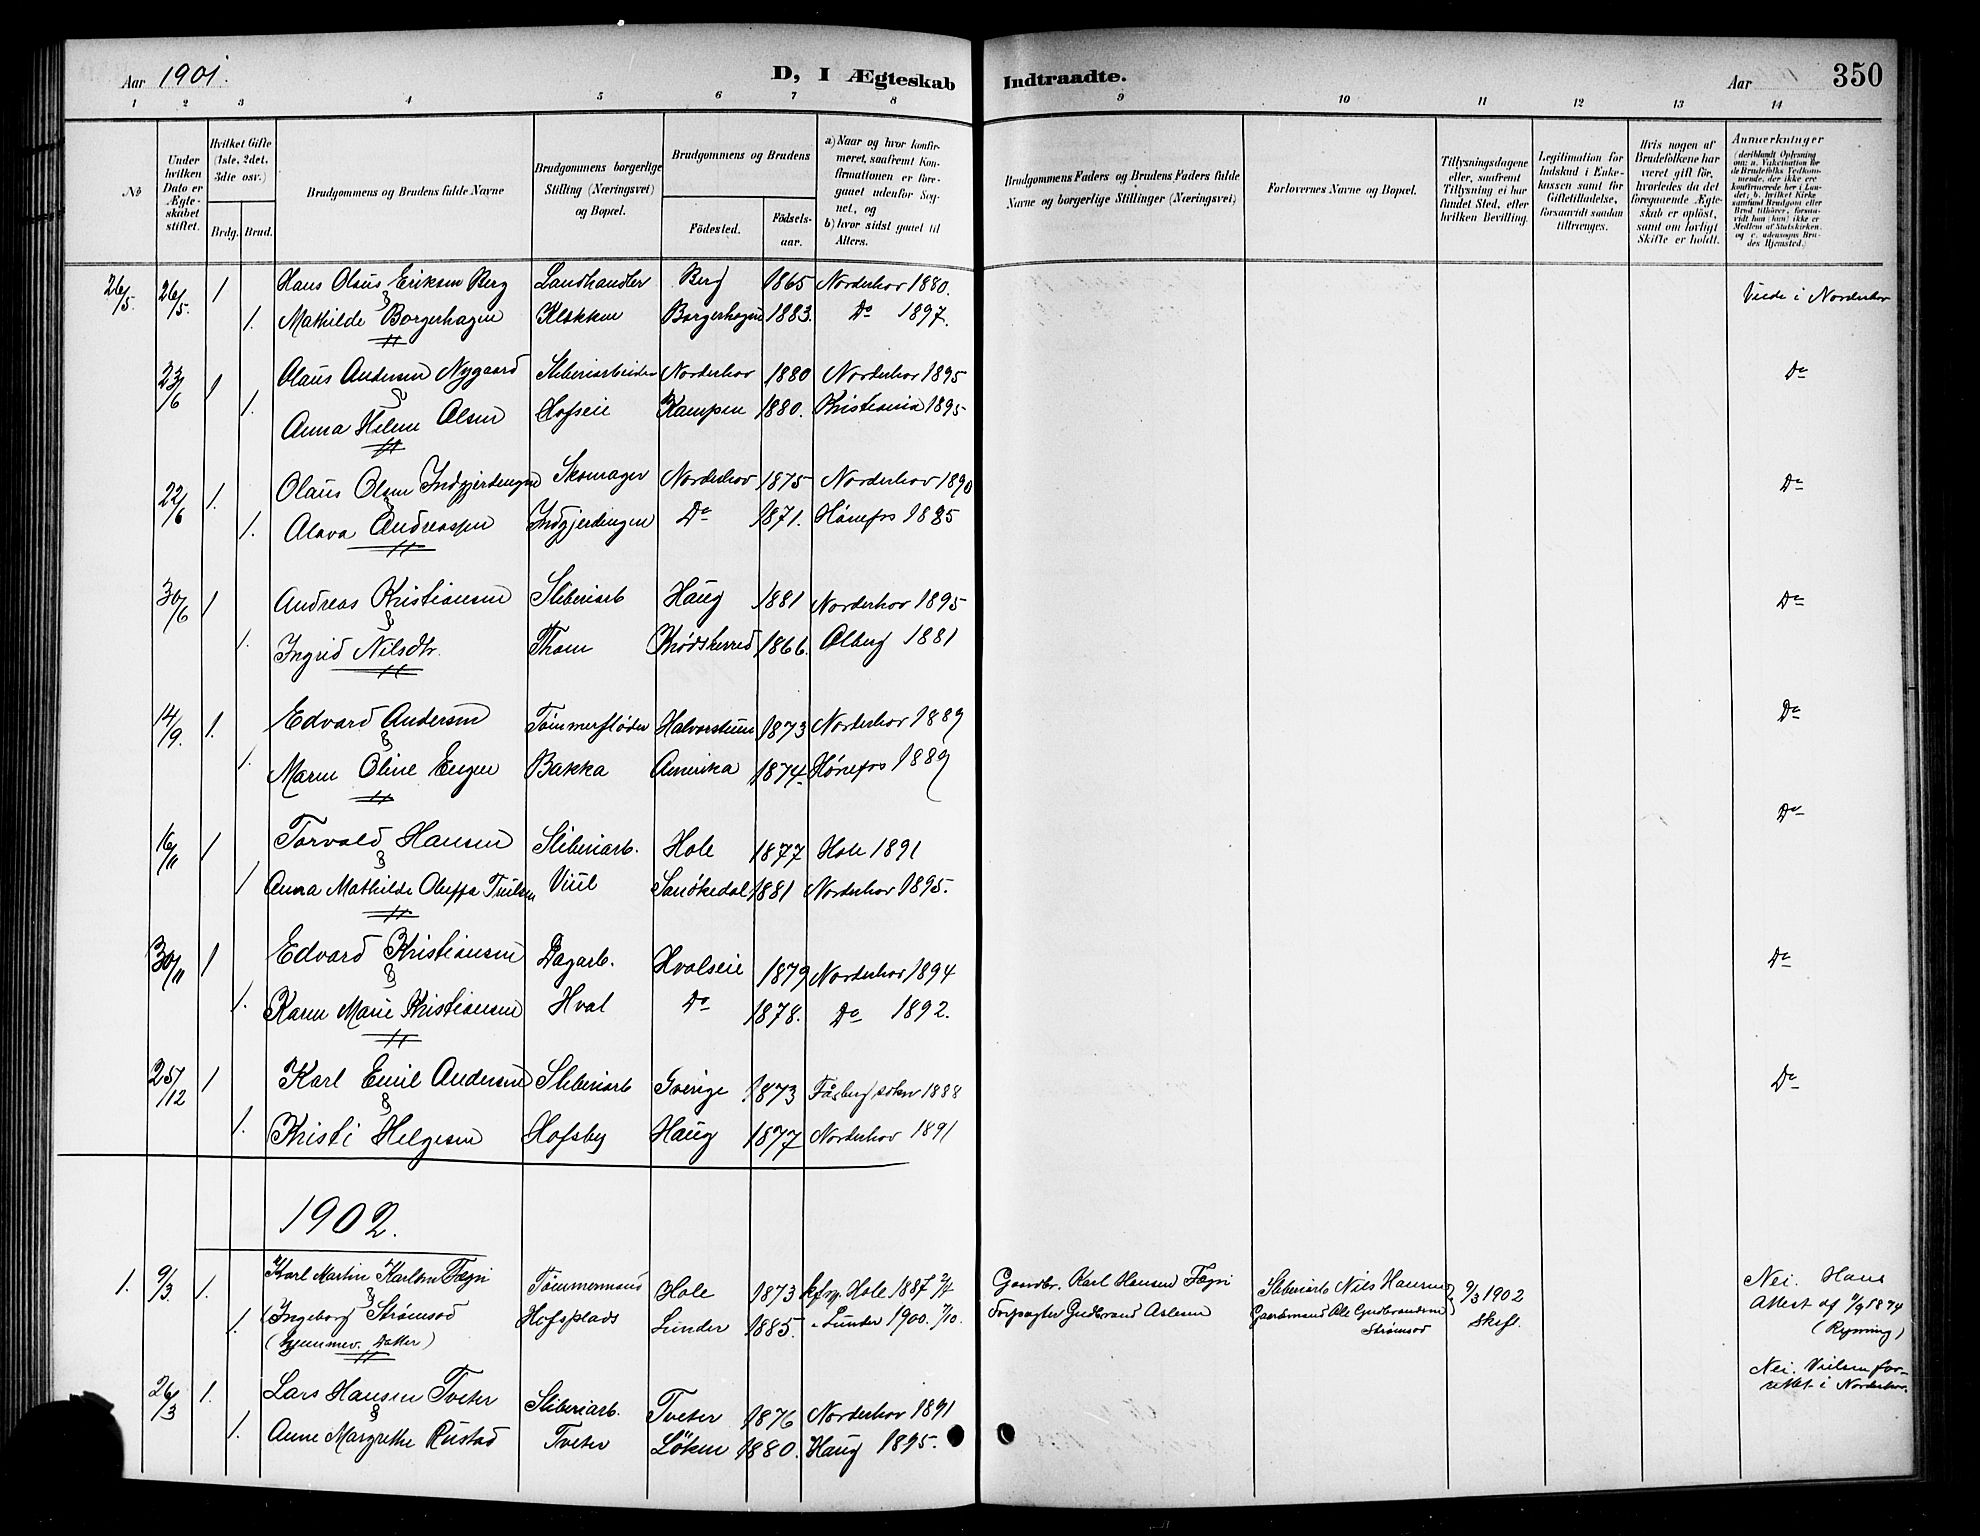 Aar 1901. D, I Ægteskab Indtraadte. Aar 350
1 2 3 4 5 6 7 8 9 10 11 12 13 14
No
Under hvilken Dato er Ægteskabet stiftet.
Hvilket Gifte (1ste, 2det, 3die osv.)
Brdg. Brud.
Brudgommens og Brudens fulde Navne
Brudgommens borgerlige Stilling (Næringsvei) og Bopæl.
Brudgommens og Brudens
Födested. Födsels-aar.
a) Naar og hvor konfirmeret, saafremt Konfirmationen er foregaaet udenfor Sognet, og
b) hvor sidst gaaet til Alters.
Brudgommens Faders og Brudens Faders fulde Navne og borgerlige Stillinger (Næringsvei)
Forlovernes Navne og Bopæl.
Tillysningsdagene eller, saafremt Tillysning ei har fundet Sted, efter hvilken Bevilling.
Legitimation for Indskud i Enkekassen samt for Giftetilladelse, forsaavidt saadan tiltrænges.
Hvis nogen af Brudefolkene har været gift för, hvorledes da det foregaaende Ægteskab er oplöst, samt om lovligt Skifte er holdt.
Anmærkninger (deriblandt Oplysning om: a. Vakcination for de Brudefolks Vedkommende, der ikke ere konfirmerede her i Landet; b. hvilket Kirkesamfund Brudgom eller Brud tilhörer, forsaavidt han (hun) ikke er Medlem af Statskirken, og c. udensogns Brudes Hjemsted.)
26/5 26/5. 1 Hans Olaus Eriksen Berg Landhandler Berg 1865 Norderhov 1880. Viede i Norderhov
1. Mathilde Borgerhagen Klækken Borgerhagen 1883. Do 1897.
23/6 1 Olaus Andersen Nygaard Sliberiarbeider Norderhov 1880 Norderhov 1895 Do
1. Anna Helene Olsen Hofseie Kampen 1880. Kristiania 1895
22/6 1. Olaus Olsen Indgjerdingen Skomager Norderhov 1875 Norderhov 1890 Do
1. Alava Andreassen Indgjerdingen Do 1871. Hönefos 1885
30/6 1 Andreas Kristiansen Sliberiarb Haug 1881 Norderhov 1895 Do
1. Ingrid Nilsdtr. Thom Krødsherred 1866. Olberg 1881
14/9. 1. Edvard Andersen Tømmerfløder Halvorstuen 1873 Norderhov 1889 Do
1. Maren Oline Engen Bakka Amerika 1874 Hönefos 1889
16/11 1 Torvald Hansen Sliberiarb. Hole 1877 Hole 1891 Do
1 Anna Mathilde Oluffa Viul Sanökedal 1881 Norderhov 1895.
30/11 1 Edvard Kristiansen Dagarb. Hvalseie 1879 Norderhov 1894 Do
1. Karen Marie Kristiansen Hval Do 1878. Do 1892.
25/12 1 Karl Emil Andersen Sliberiarb Sverige 1873 Fåsberg sokn 1888 Do
1. Kristi Helgesen Hofsby Haug 1877 Norderhov 1891
1902.
1. 9/3 1. Karl Martin Karlsen Fægri Tømmermand Hole 1873 Hole 1887 Gaardbr. Karl Hansen Fægri Sliberiarb Nils Hansen 9/3 1902 Nei. Hans
1. Ingeborg Strømsod Hofsplads Lunder 1885. Lunder 1900. Forpagter Gudbrand Aslesen Gaardmand Ole Gudbrandsen Strømsod Skift. Attest af 1874
(Hjemmev. Datter) (Rynning)
26/3 1. Lars Hansen Tveter Sliberiarb. Tveter 1876 Norderhov 1891 Nei. Vielsen forrettet i Norderhov.
1. Anne Margrethe Rustad Tveter Löken 1880. Haug 1895.